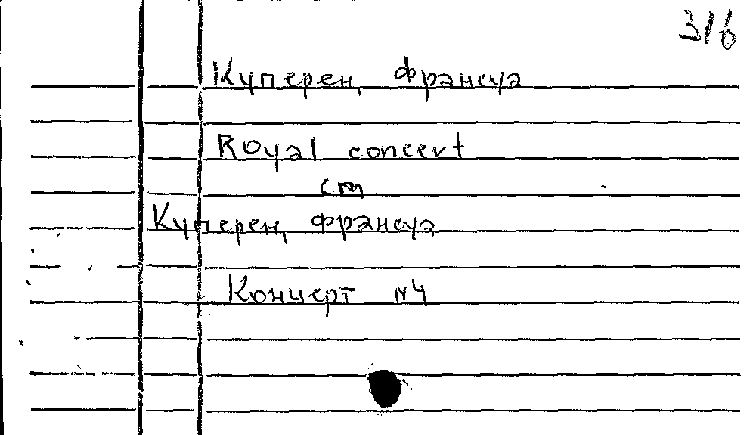 316
Куперен, Франсуа
Royal concert
cm
Куперен, Франсуа
Концерт №4